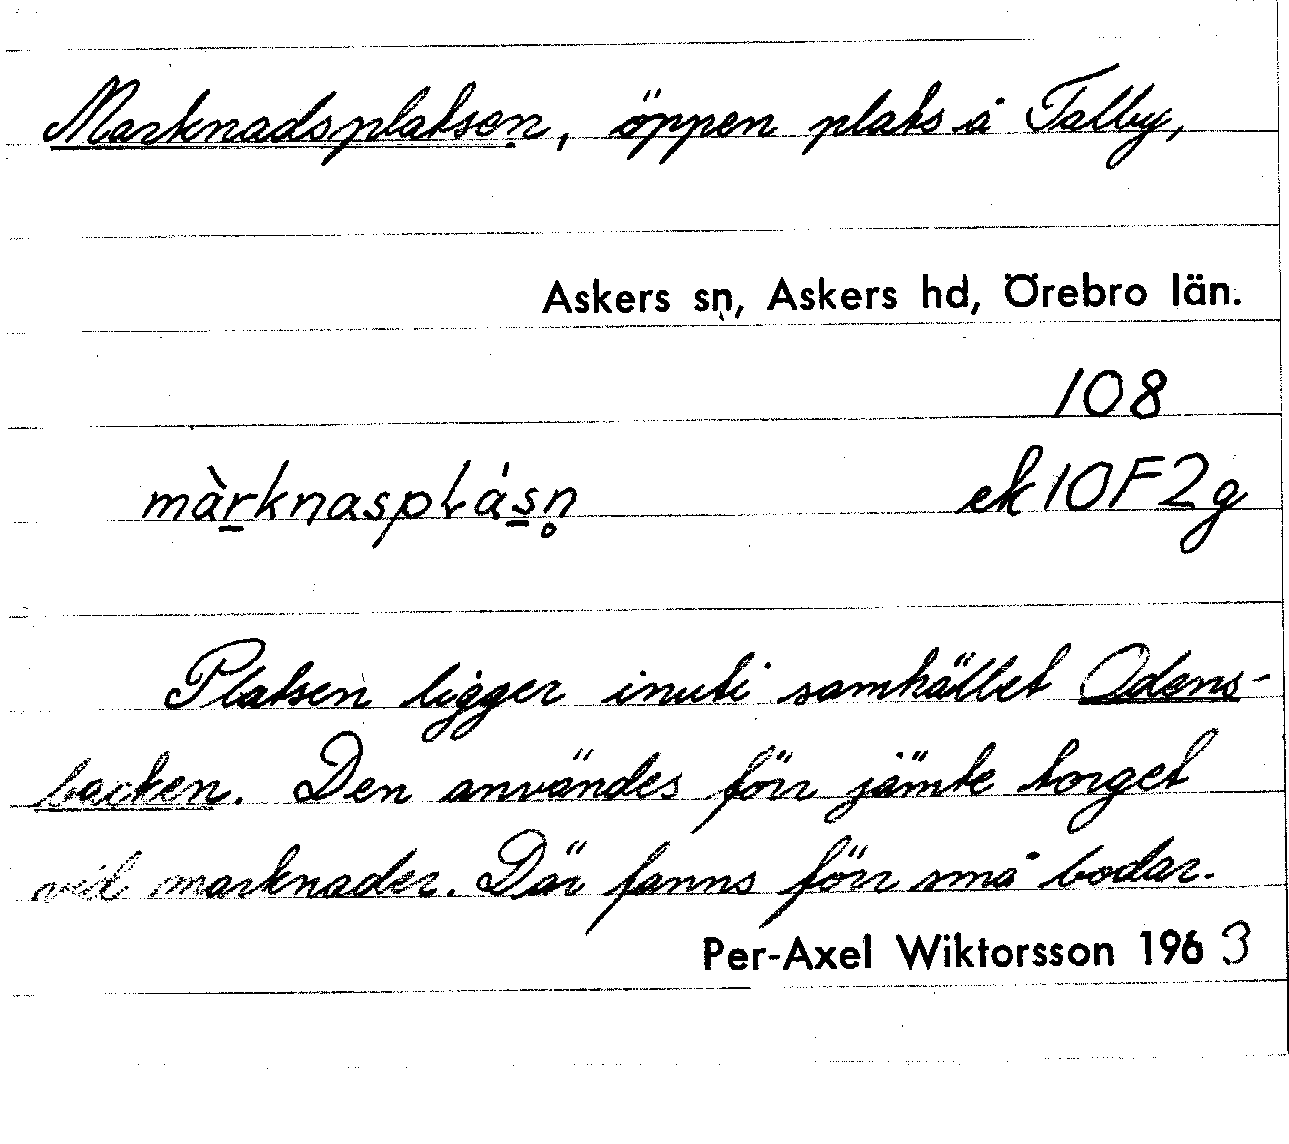 Marknadsplatsen, öppen plats å Talby,
Askers sn, Askers hd, Örebro län.
108
màr̲knasplás̲n̥ ek 10F2g
Platsen ligger inuti samhället Odens-
backen. Den användes förr jämte torget
vid marknader. Där fanns förr små bodar.
Per-Axel Wiktorsson 1963